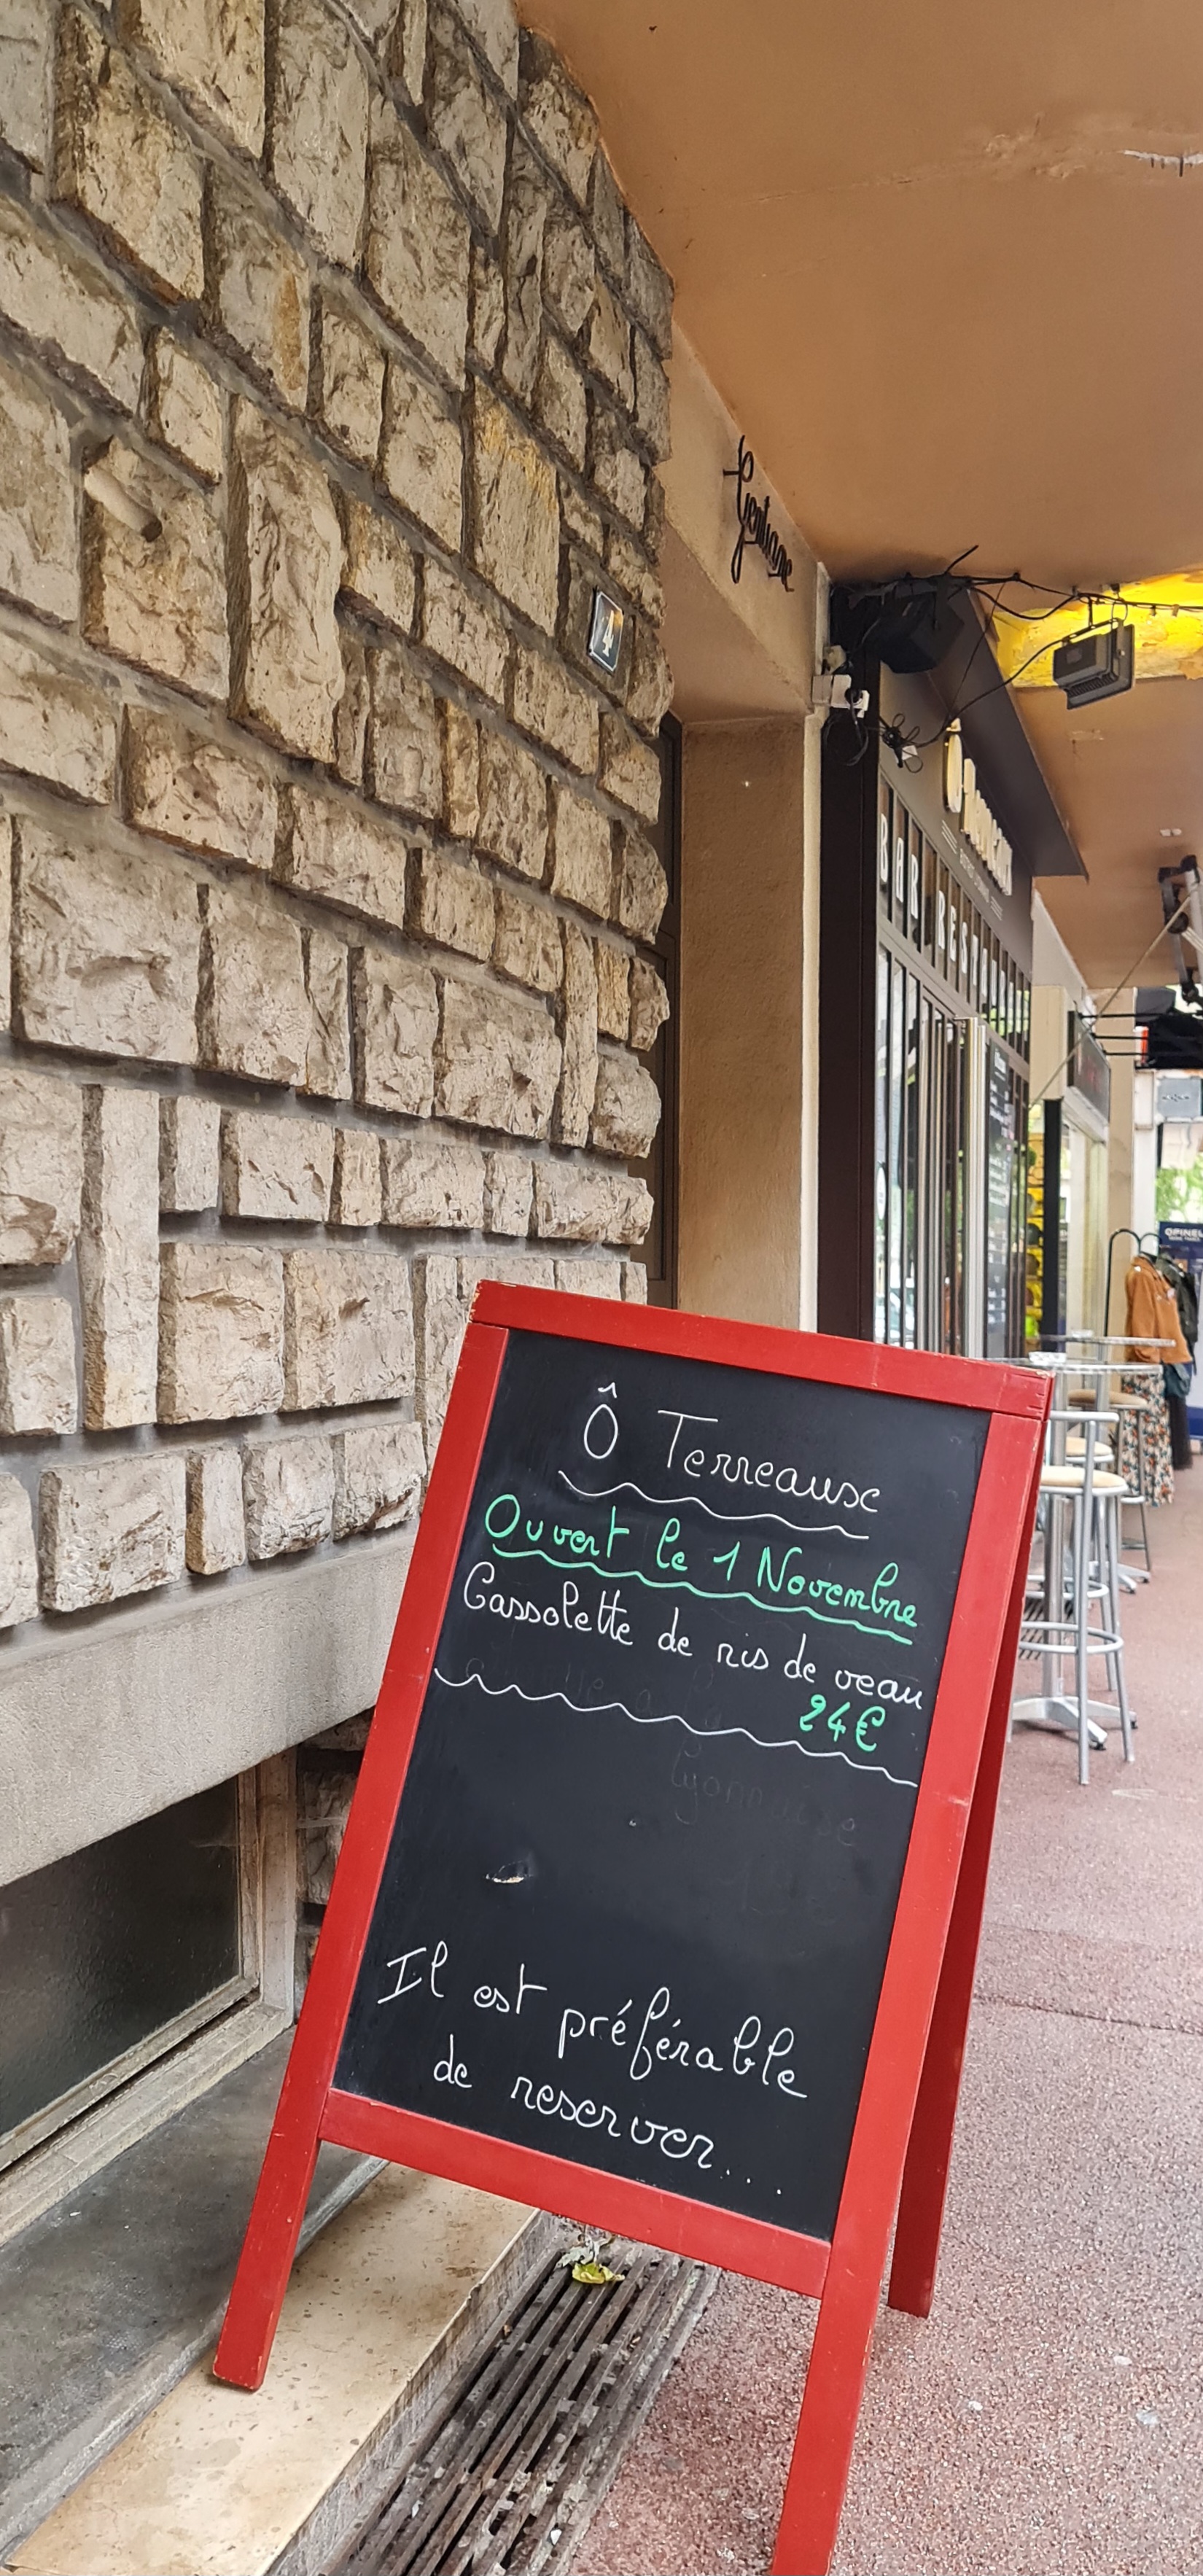 Gentiane
4
BAR RESTAURANT
OPINEL
Ô Terreaux
Ouvert le 1 Novembre
Cassolette de ris de veau
24€
lyonnaise
Il est préférable
de reserver....